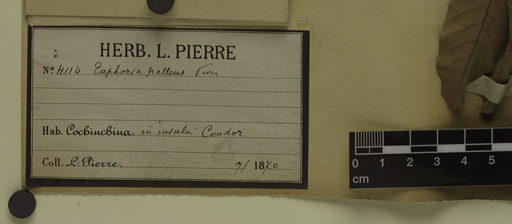 HERB. L. PIERRE
Nº 4114 Euphoria
Hab. Cochinchina in insula Condor
Coll. L. Pierre. 7/ 1870
0 1 2 3 4 5
cm